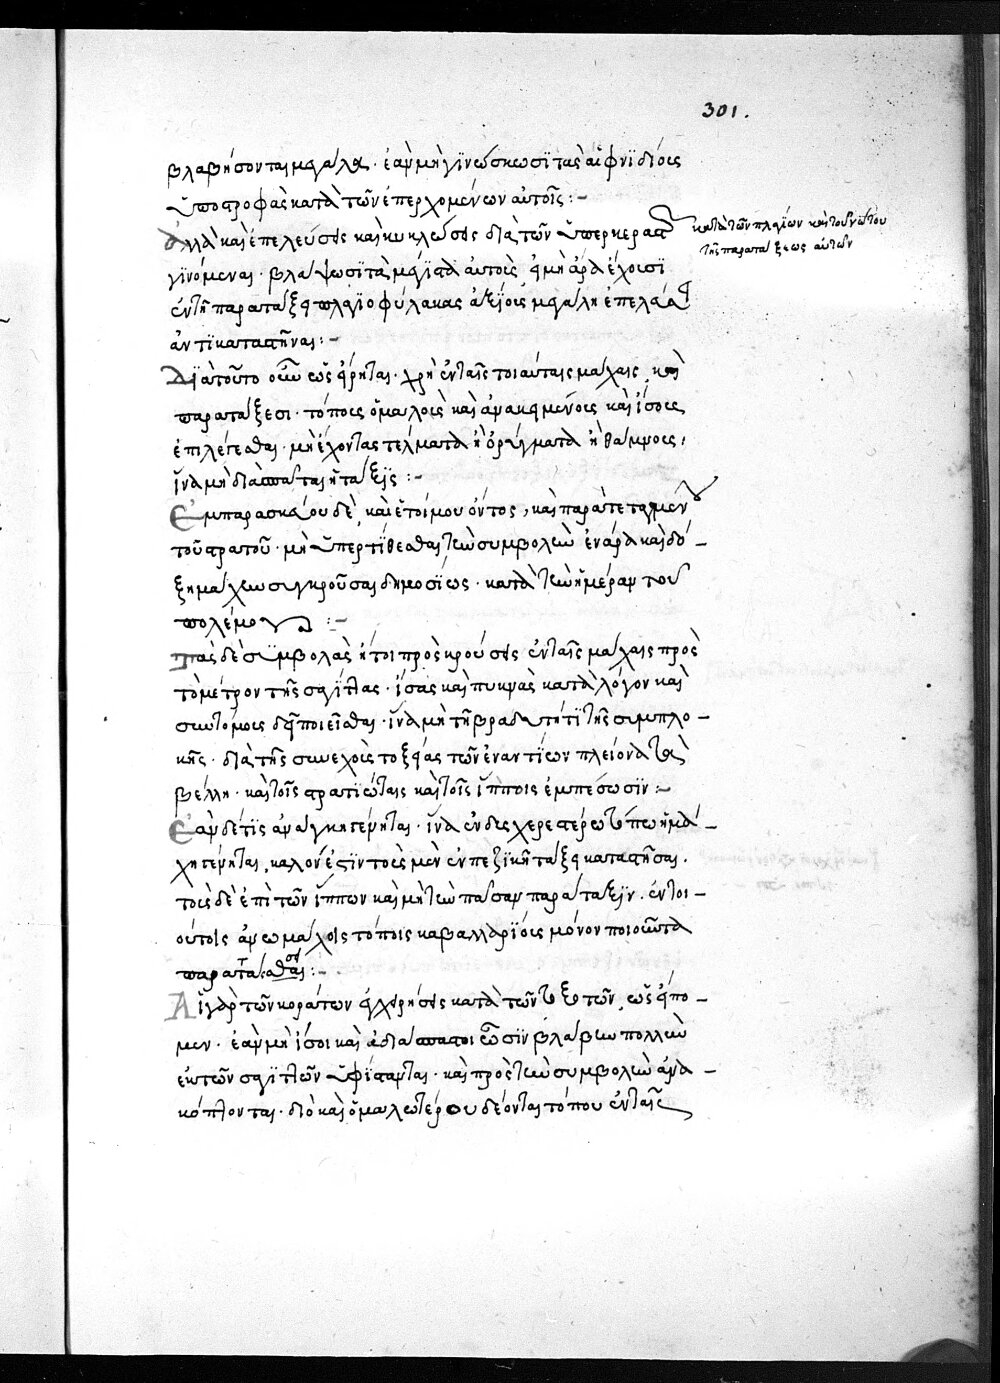 301.
βλαβήσονται μεγάλα· ἐὰν μὴ γϊνώσκωσι τὰς αἰφνϊδίους
ὑποστροφὰς κατὰ τῶν ἐπερχομένων αὐτοῖς:-
Ἀλλὰ καὶ ἐπελεύσεις καὶ κυκλώσεις διὰ τῶν ὑπερκεραστῶν
κατὰ τῶν πλαγίων καὶ τοῦ νώτου
τῆς παρατάξεως αὐτῶν
γϊνόμεναι· βλάψωσϊ τὰ μέγϊστα αὐτοὺς εἰ μὴ ἄρα ἔχουσϊ
ἐν τῇ παρατάξει πλαγϊοφύλακας ἀξίους μεγάλῃ ἐπελάσει
ἀντϊκαταστῆναι:-
Δϊὰ τοῦτο οὖν ὡς εἴρηται· χρὴ ἐν ταῖς τοιαύταις μάχαις καὶ
παρατάξεσι· τόπους ὁμαλοὺς καὶ ἀναπεπταμένους καὶ ἴσους
ἐπιλέγεσθαι· μὴ ἔχοντας τέλματα ἢ ὀρύγματα ἢ θάμνους,
ἵνα μὴ διασπᾶται ἡ τάξϊς:-
Ἐμπαρασκεύου δὲ, καὶ ἑτοίμου ὄντος, καὶ παρατεταγμένου
τοῦ στρατοῦ· μὴ ὑπερτίθεσθαι τὴν συμβολὴν ἐὰν ἄρα καὶ δό-
ξῃ μάχην συγκροῦσαι δημοσίως· κατὰ τὴν ἡμέραν τοῦ
πολέμου:-
Τὰς δὲ συμβολὰς ἤτοι προσκρούσεις ἐν ταῖς μάχαις πρὸς
τὸ μέτρον τῆς σαγίττας· ἴσας καὶ πυκνὰς κατὰ λόγον καὶ
συντόμους δεῖ ποιεῖσθαι· ἵνα μὴ τῇ βραδυτήτϊ τῆς συμπλο-
κῆς· διὰ τῆς συνεχοῦς τοξείας τῶν ἐναντίων πλείονα τὰ
βέλη· καὶ τοῖς στρατιώταις καὶ τοῖς ἵπποις ἐμπέσωσϊν:-
Ἐὰν δέ τϊς ἀνάγκη γένηται· ἵνα ἐν δυσχερεστέρῳ τόπῳ ἡ μά-
χη γένηται, καλόν ἐστϊν τοὺς μὲν ἐν πεζϊκῇ τάξει καταστῆσαι·
τοὺς δὲ ἐπὶ τῶν ἵππων καὶ μὴ τὴν πᾶσαν παράταξϊν. ἐν τοι-
ούτοις ἀνωμάλοις τόποις καβαλλαρϊους μόνον ποιοῦντα
παρατάσσεσθαι:-
Αἱ γὰρ τῶν κοράτων ἐγχειρήσεις κατὰ τῶν τοξοτῶν, ὡς εἴπο-
μεν· ἐὰν μὴ ἴσοι καὶ ἀδιάσπαστοι ὦσϊν βλάβην πολλὴν
ἐκ τῶν σαγϊττῶν ὑφίστανται· καὶ πρὸς τὴν συμβολὴν ἀνα-
κόπτονται· διὸ καὶ ὁμαλωτέρου δέονται τόπου ἐν ταῖς